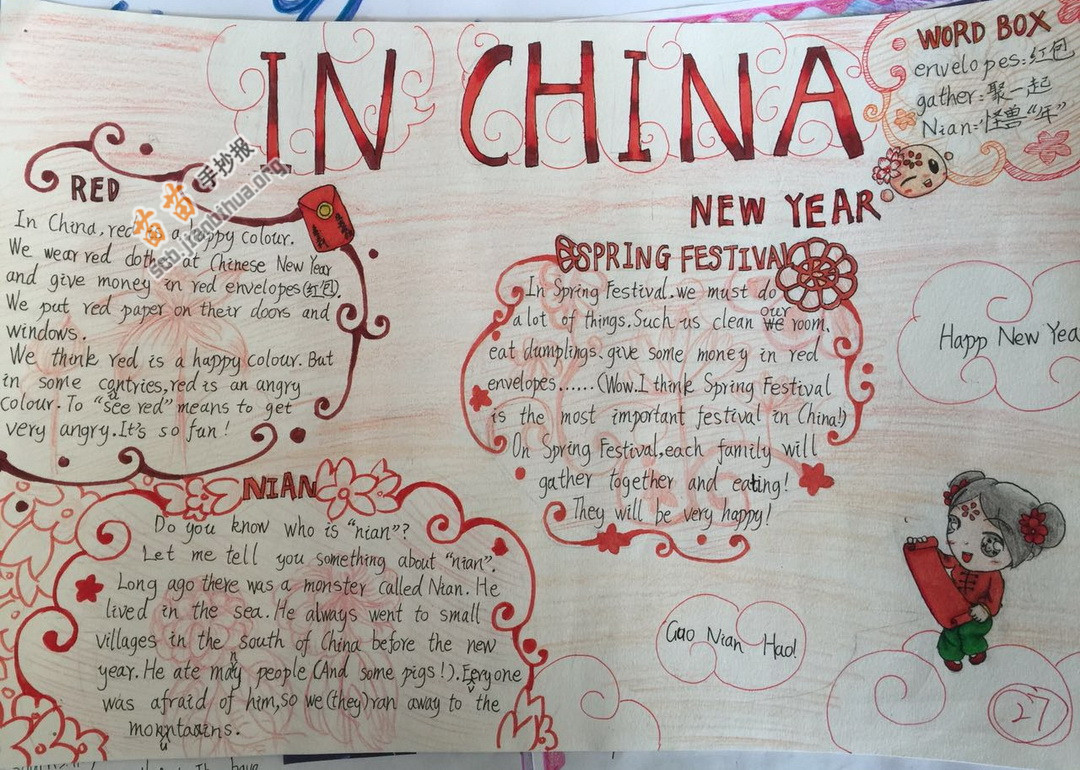 IN CHINA
WORD BOX
envelopes:红包
gather:聚一起
Nian:怪兽“年”
RED
In China, red is a happy colour.
We wear red clothes at Chinese New Year
and give money in red envelopes(红包).
We put red paper on their doors and
windows.
We think red is a happy colour. But
in some contries, red is an angry
colour. To “see red” means to get
very angry. It's so fun!
苗苗手抄报
scb.jianbihua.org
NEW YEAR
SPRING FESTIVAL
In Spring Festival. we must do
a lot of things. Such us clean our room.
eat dumplings. give some money in red
envelopes......(Wow. I think Spring Festival
is the most important festival in China!)
On Spring Festival, each family will
gather together and eating!
They will be very happy!
Happy New Yea
NIAN
Do you know who is “nian”?
Let me tell you something about “nian”.
Long ago there was a monster called Nian. He
lived in the sea. He always went to small
villages in the south of China before the new
year. He ate many people (And some pigs!). Everyone
was afraid of him, so we (they) ran away to the
mountains.
Guo Nian Hao!
27